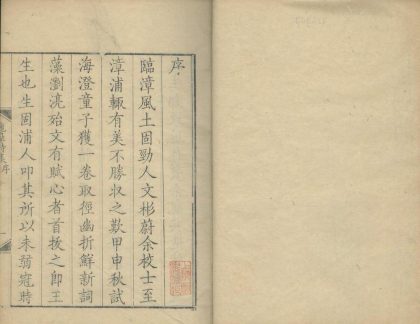 序
臨漳風土固勁人文彬蔚余校士至
漳浦輒有美不勝収之歎甲申秋試
海澄童子獲一卷取徑幽折鮮新詞
藻瀏亮始文有賦心者首拔之卽王
生也生固浦人叩其所以未弱冠時